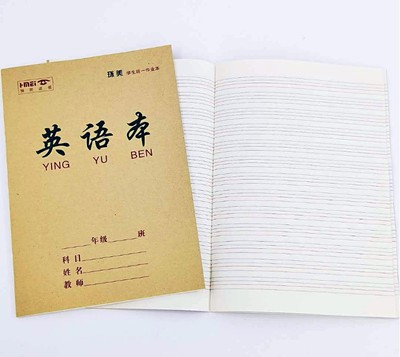 HMEI
环美 学生统一作业本
英语本
YING YU BEN
年级 班
科目
姓名
教师